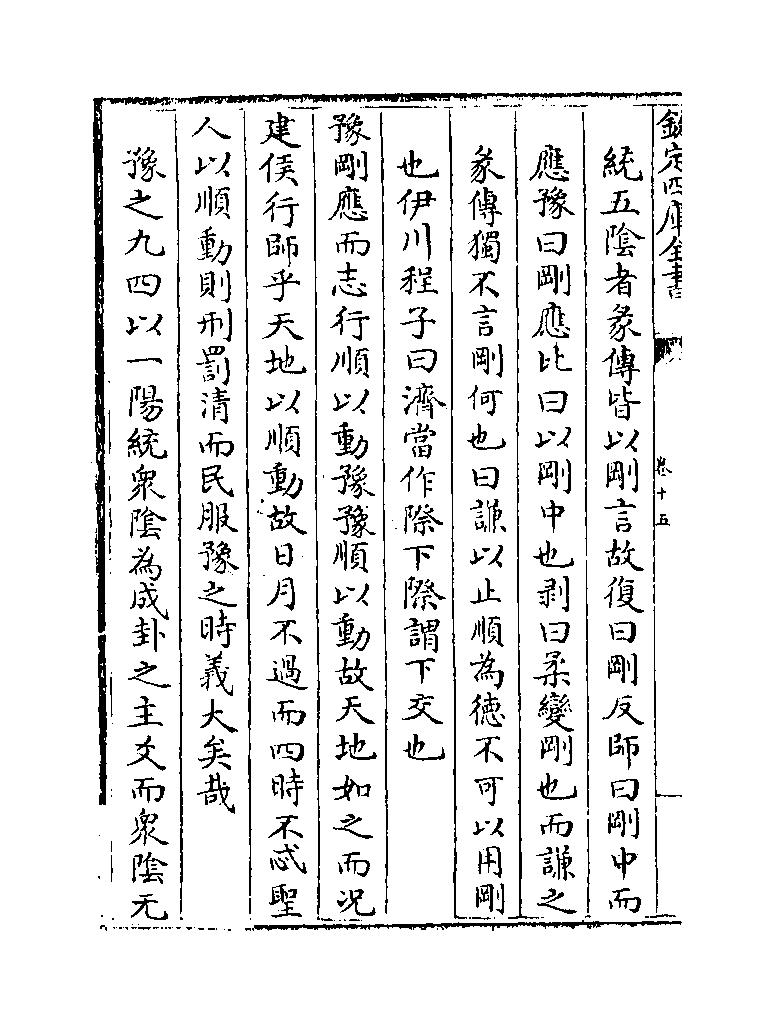 欽定四庫全書
卷十五
統五陰者彖傳皆以剛言故復曰剛反師曰剛中而
應豫曰剛應比曰以剛中也剥曰柔變剛也而謙之
彖傳獨不言剛何也曰謙以止順為徳不可以用剛
也伊川程子曰濟當作際下際謂下交也
豫剛應而志行順以動豫豫順以動故天地如之而况
建侯行師乎天地以順動故日月不過而四時不忒聖
人以順動則刑罰清而民服豫之時義大矣哉
豫之九四以一陽統衆陰為成卦之主爻而衆陰无